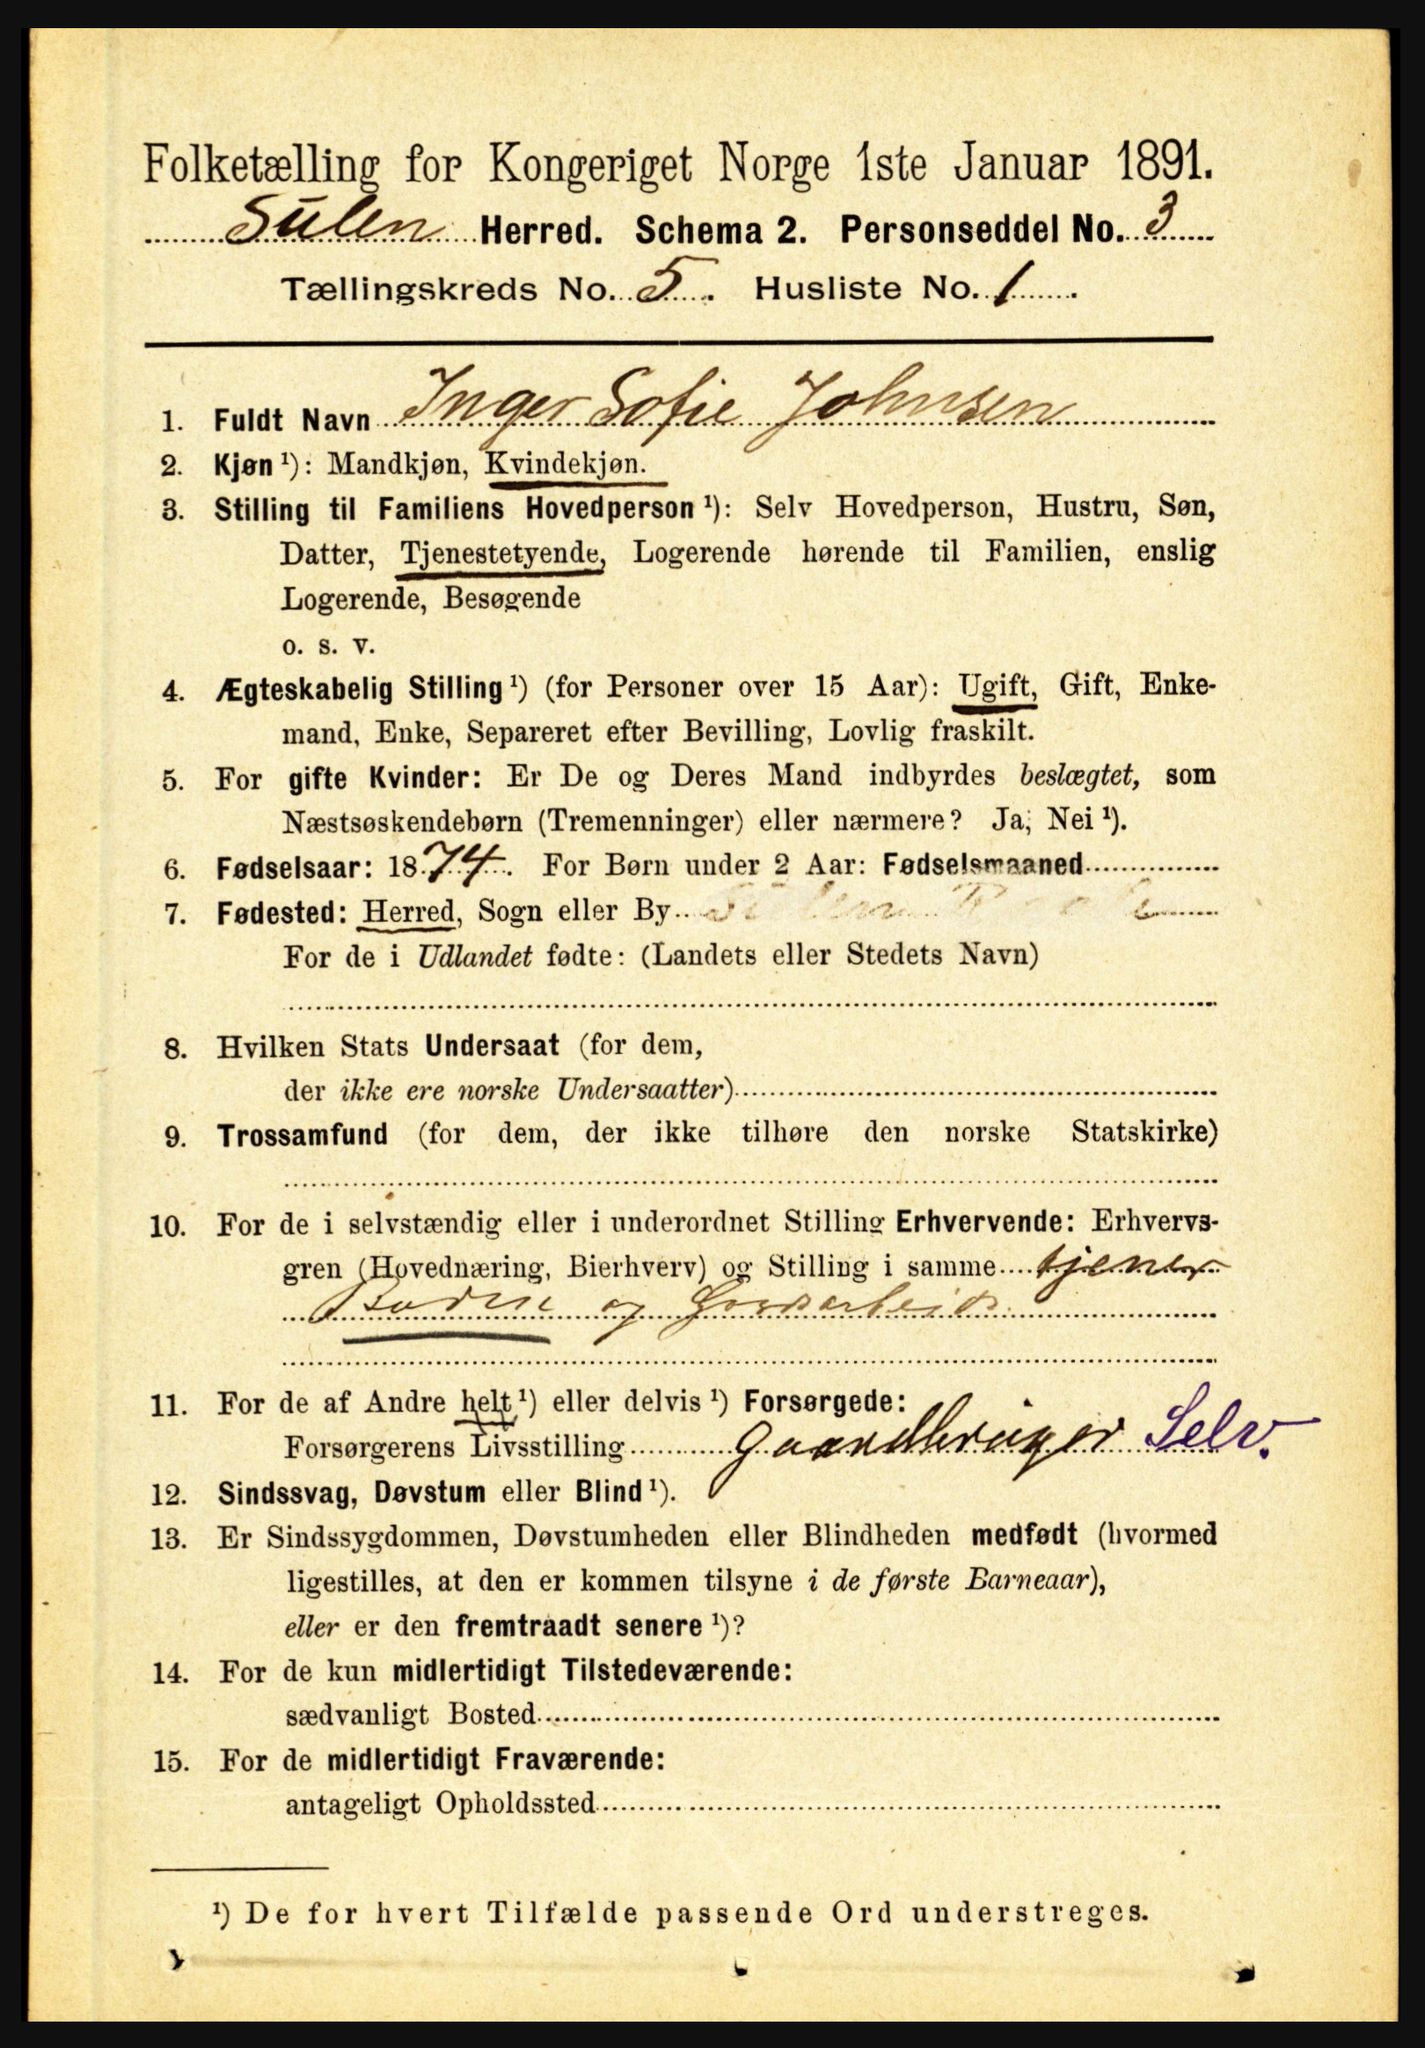 Folketælling for Kongeriget Norge 1ste Januar 1891.
Sulen Herred. Schema 2. Personseddel No. 3
Tællingskreds No. 5. Husliste No. 1.
1. Fuldt Navn Inger Sofie Johnsen
2. Kjøn ¹): Mandkjøn, Kvindekjøn.
3. Stilling til Familiens Hovedperson ¹): Selv Hovedperson, Hustru, Søn,
Datter, Tjenestetyende, Logerende hørende til Familien, enslig
Logerende, Besøgende
o. s. v.
4. Ægteskabelig Stilling ¹) (for Personer over 15 Aar): Ugift, Gift, Enke-
mand, Enke, Separeret efter Bevilling, Lovlig fraskilt.
5. For gifte Kvinder: Er De og Deres Mand indbyrdes beslægtet, som
Næstsøskendebørn (Tremenninger) eller nærmere? Ja, Nei ¹).
6. Fødselsaar: 1874. For Børn under 2 Aar: Fødselsmaaned
7. Fødested: Herred, Sogn eller By Sulen
For de i Udlandet fødte: (Landets eller Stedets Navn)
8. Hvilken Stats Undersaat (for dem,
der ikke ere norske Undersaatter)
9. Trossamfund (for dem, der ikke tilhøre den norske Statskirke)
10. For de i selvstændig eller i underordnet Stilling Erhvervende: Erhvervs-
gren (Hovednæring, Bierhverv) og Stilling i samme tjener
og
11. For de af Andre helt ¹) eller delvis ¹) Forsørgede:
Forsørgerens Livsstilling Selv.
12. Sindssvag, Døvstum eller Blind ¹).
13. Er Sindssygdommen, Døvstumheden eller Blindheden medfødt (hvormed
ligestilles, at den er kommen tilsyne i de første Barneaar),
eller er den fremtraadt senere ¹)?
14. For de kun midlertidigt Tilstedeværende:
sædvanligt Bosted
15. For de midlertidigt Fraværende:
antageligt Opholdssted
¹) De for hvert Tilfælde passende Ord understreges.